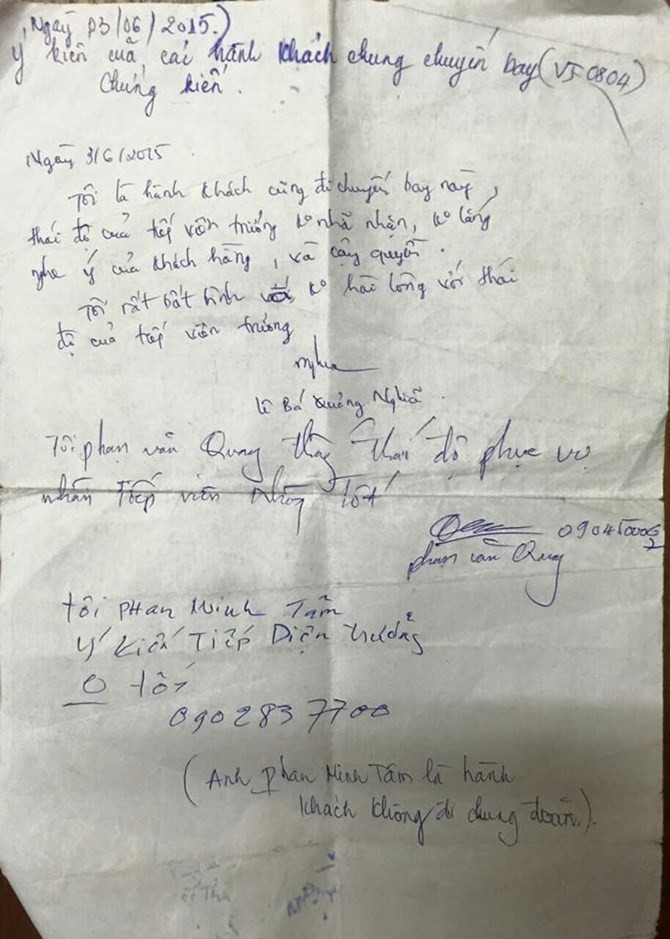 Ngày 03/06/2015.)
Ý kiến của các hành khách chung chuyến bay (VJ 0804)
Chứng kiến.
Ngày 3/6/2015
Tôi là hành khách cùng đi chuyến bay này,
thái độ của tiếp viên trưởng ko nhã nhặn, ko lắng
nghe ý của khách hàng, và cậy quyền.
Tôi rất bất bình và ko hài lòng với thái
độ của tiếp viên trưởng
Nghĩa
Lê Bá Quảng Nghĩa
Tôi phạn văn Quang thấy thái độ phục vụ
nhân Tiếp viên không Tốt
phạn văn Quang
tôi PHAN MINH TÂM
Ý kiến Tiếp Diện trưởng
0 tốt
0902837700
(Anh Phan Minh Tâm là hành
khách không đi chung đoàn.).